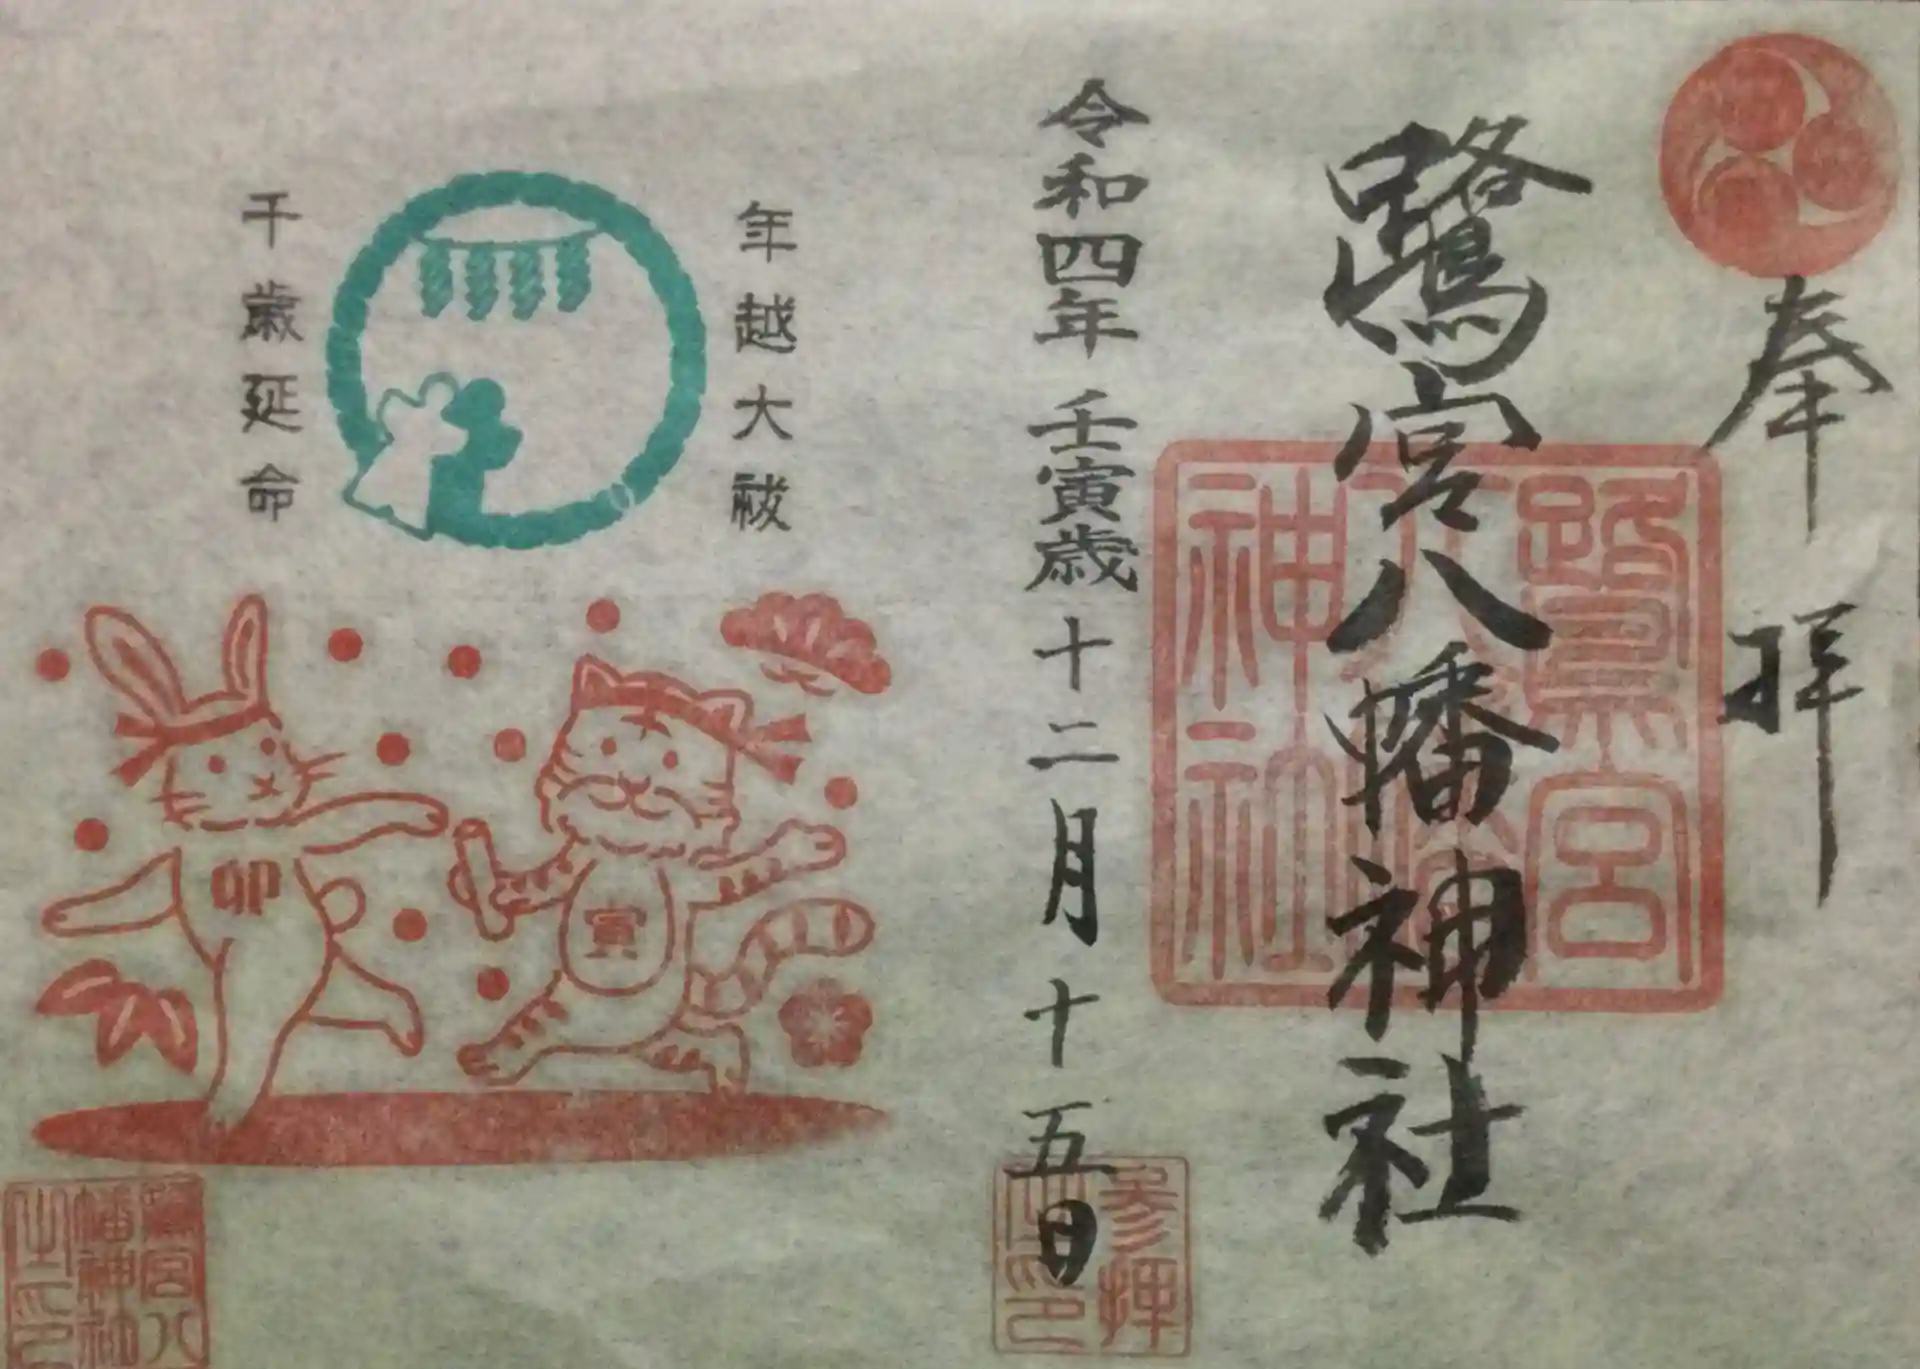 奉拝
鷺宮八幡神社
鷺宮
八幡
神社
令和四年 壬寅歳 十二月 十五日
参拝
之印
年越大祓
千歳延命
寅
卯
鷺宮八
幡神社
之印